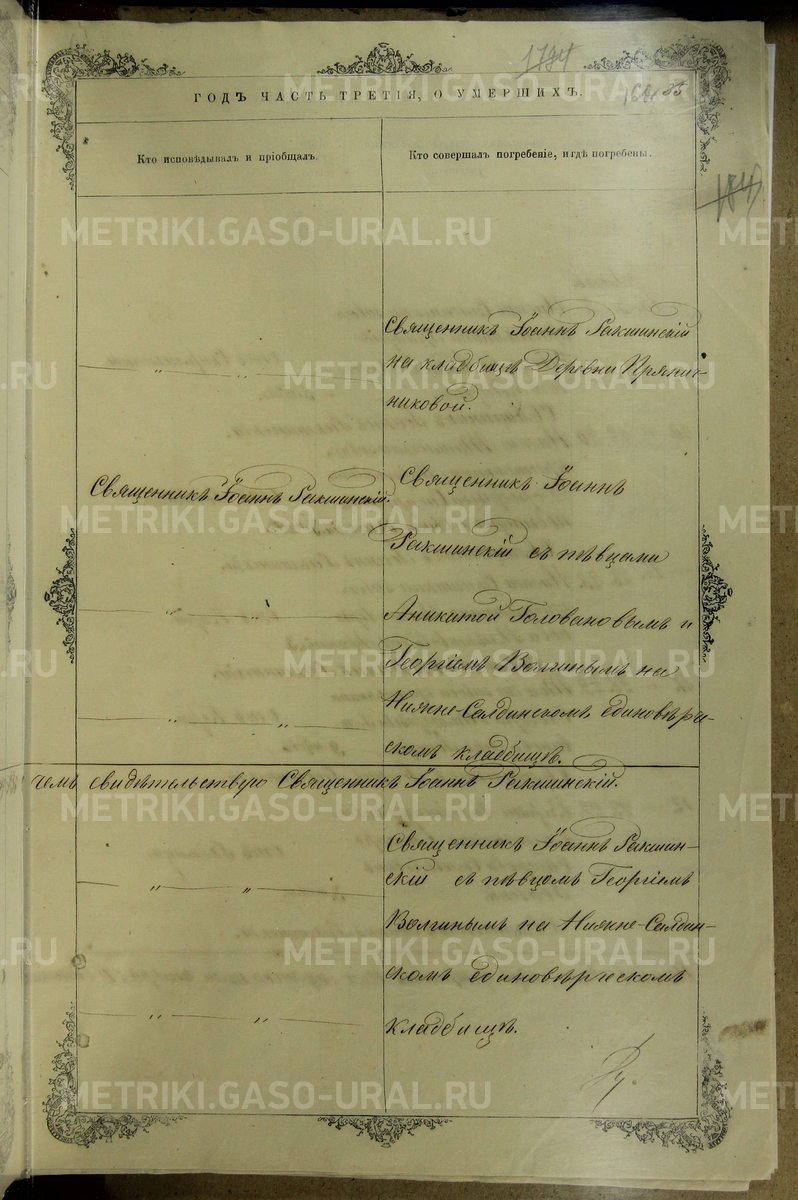 1794
ГОДЪ ЧАСТЬ ТРЕТІЯ, О УМЕРШИХЪ.
Кто исповѣдывалъ и пріобщалъ.
Кто совершалъ погребеніе, и гдѣ погребены.
184
Священникъ Іоаннъ Ракшинскій
на кладбищѣ Деревни Прянич-
никовой.
Священникъ Іоаннъ Ракшинскій.
Священникъ Іоаннъ
Ракшинскій съ пѣвцами
Аникитой Головановымъ и
Георгіемъ Волгинымъ на
Нижне-Салдинскомъ единовѣрче-
скомъ кладбищѣ.
чемъ свидѣтельствую Священникъ Іоаннъ Ракшинскій.
Священникъ Іоаннъ Ракшин-
скій съ пѣвцомъ Георгіемъ
Волгинымъ на Нижне-Салдин-
скомъ единовѣрческомъ
кладбищѣ.
METRIKI.GASO-URAL.RU